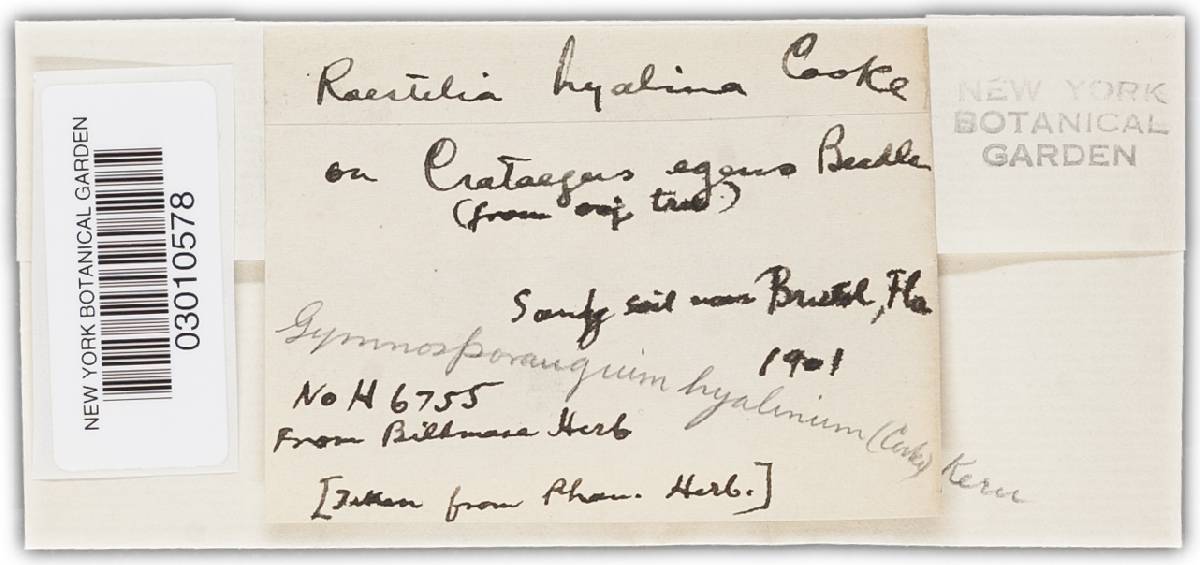 NEW YORK BOTANICAL GARDEN
03010578
NEW YORK
BOTANICAL
GARDEN
Roestelia hyalina Cooke
on Crataegus egens Beadle
(from orig tree)
Sandy soil near Bristol, Fla
1901
Gymnosporangium hyalinum (Cooke) Kern
No H 6755
From Biltmore Herb
[Taken from Phan. Herb.]